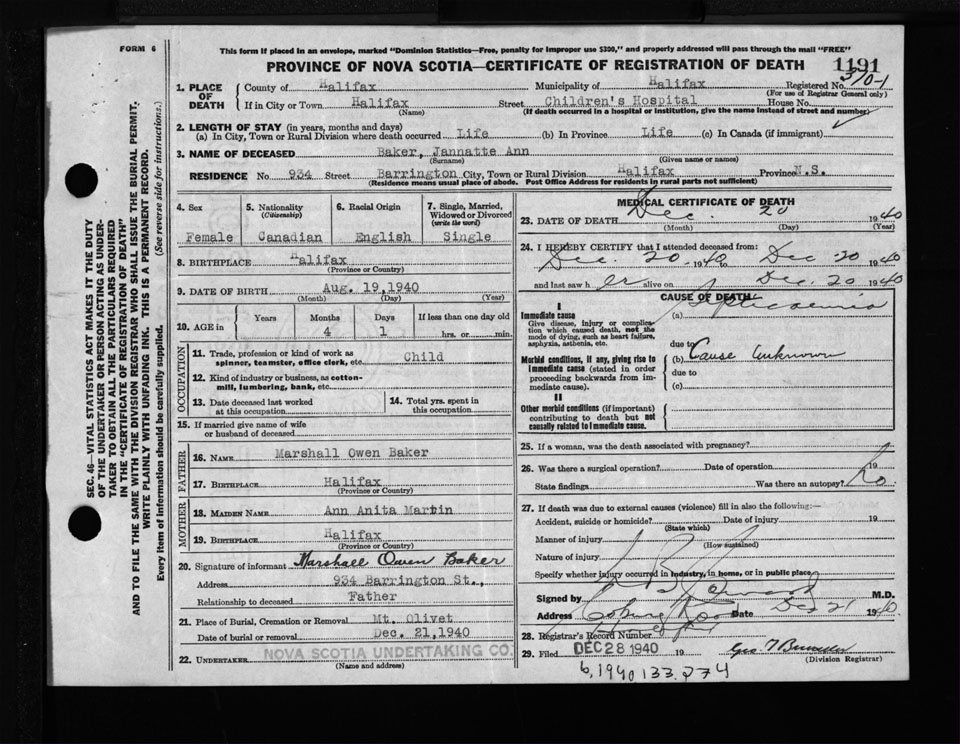 FORM 6
This form if placed in an envelope, marked "Dominion Statistics—Free, penalty for improper use $300," and properly addressed will pass through the mail "FREE"
PROVINCE OF NOVA SCOTIA—CERTIFICATE OF REGISTRATION OF DEATH 1191
SEC. 46—VITAL STATISTICS ACT MAKES IT THE DUTY
OF THE UNDERTAKER OR PERSON ACTING AS UNDER-
TAKER TO OBTAIN ALL THE PARTICULARS REQUIRED
IN THE "CERTIFICATE OF REGISTRATION OF DEATH"
AND TO FILE THE SAME WITH THE DIVISION REGISTRAR WHO SHALL ISSUE THE BURIAL PERMIT.
WRITE PLAINLY WITH UNFADING INK. THIS IS A PERMANENT RECORD.
Every item of information should be carefully supplied. (See reverse side for instructions.)
1. PLACE OF DEATH
County of Halifax Municipality of Halifax Registered No. 370-1
(For use of Registrar General only)
If in City or Town Halifax Street Children's Hospital House No.
(Name) (If death occurred in a hospital or institution, give the name instead of street and number)
2. LENGTH OF STAY (in years, months and days)
(a) In City, Town or Rural Division where death occurred Life (b) In Province Life (c) In Canada (if immigrant)
3. NAME OF DECEASED Baker, Jannatte Ann
(Surname) (Given name or names)
RESIDENCE No. 934 Street Barrington City, Town or Rural Division Halifax Province N.S.
(Residence means usual place of abode. Post Office Address for residents in rural parts not sufficient)
4. Sex
Female
5. Nationality
(Citizenship)
Canadian
6. Racial Origin
English
7. Single, Married,
Widowed or Divorced
(write the word)
Single
8. BIRTHPLACE Halifax
(Province or Country)
9. DATE OF BIRTH Aug. 19,1940
(Month) (Day) (Year)
10. AGE in Years Months Days If less than one day old
4 1 hrs. or min.
OCCUPATION
11. Trade, profession or kind of work as
spinner, teamster, office clerk, etc. Child
12. Kind of industry or business, as cotton-
mill, lumbering, bank, etc.
13. Date deceased last worked
at this occupation
14. Total yrs. spent in
this occupation
15. If married give name of wife
or husband of deceased
FATHER
16. NAME Marshall Owen Baker
17. BIRTHPLACE Halifax
(Province or Country)
MOTHER
18. MAIDEN NAME Ann Anita Martin
19. BIRTHPLACE Halifax
(Province or Country)
20. Signature of informant Marshall Owen Baker
Address 934 Barrington St.,
Relationship to deceased Father
21. Place of Burial, Cremation or Removal Mt. Olivet
Date of burial or removal Dec. 21,1940
22. UNDERTAKER NOVA SCOTIA UNDERTAKING CO.
(Name and address)
MEDICAL CERTIFICATE OF DEATH
23. DATE OF DEATH Dec. 20 1940
(Month) (Day) (Year)
24. I HEREBY CERTIFY that I attended deceased from:
Dec. 20 1940 to Dec. 20 1940
and last saw her alive on Dec 20 1940
CAUSE OF DEATH
I
Immediate cause (a) Septicaemia
Give disease, injury or complica-
tion which caused death, not the
mode of dying, such as heart failure,
asphyxia, asthenia, etc.
due to
Morbid conditions, if any, giving rise to
immediate cause (stated in order
proceeding backwards from im-
mediate cause).
(b) Cause Unknown
due to
(c)
II
Other morbid conditions (if important)
contributing to death but not
causally related to immediate cause.
25. If a woman, was the death associated with pregnancy?
26. Was there a surgical operation? Date of operation 19
State findings Was there an autopsy? No
27. If death was due to external causes (violence) fill in also the following:—
Accident, suicide or homicide? Date of injury 19
(State which)
Manner of injury
(How sustained)
Nature of injury
Specify whether injury occurred in industry, in home, or in public place
Signed by M.D.
Address Coburg Road Date Dec 21 1940.
28. Registrar's Record Number
29. Filed DEC 28 1940 19
(Division Registrar)
6,1940 133.274